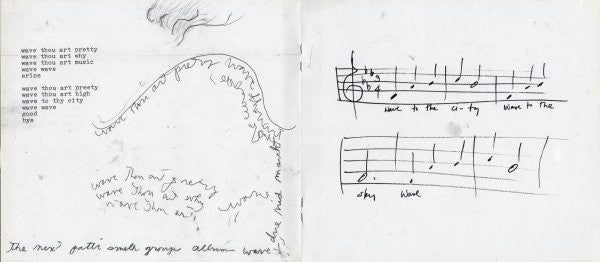 wave thou art pretty
wave thou art why
wave thou art music
wave wave
arise
wave thou art preety
wave thou art high
wave to thy city
wave wave
good
bye
wave thou art pretty wave
wave thou art pretty
wave thou art why
wave thou art
wave
due mid march
The next patti smith group album wave
Wave to the ci-ty Wave to the
sky Wave